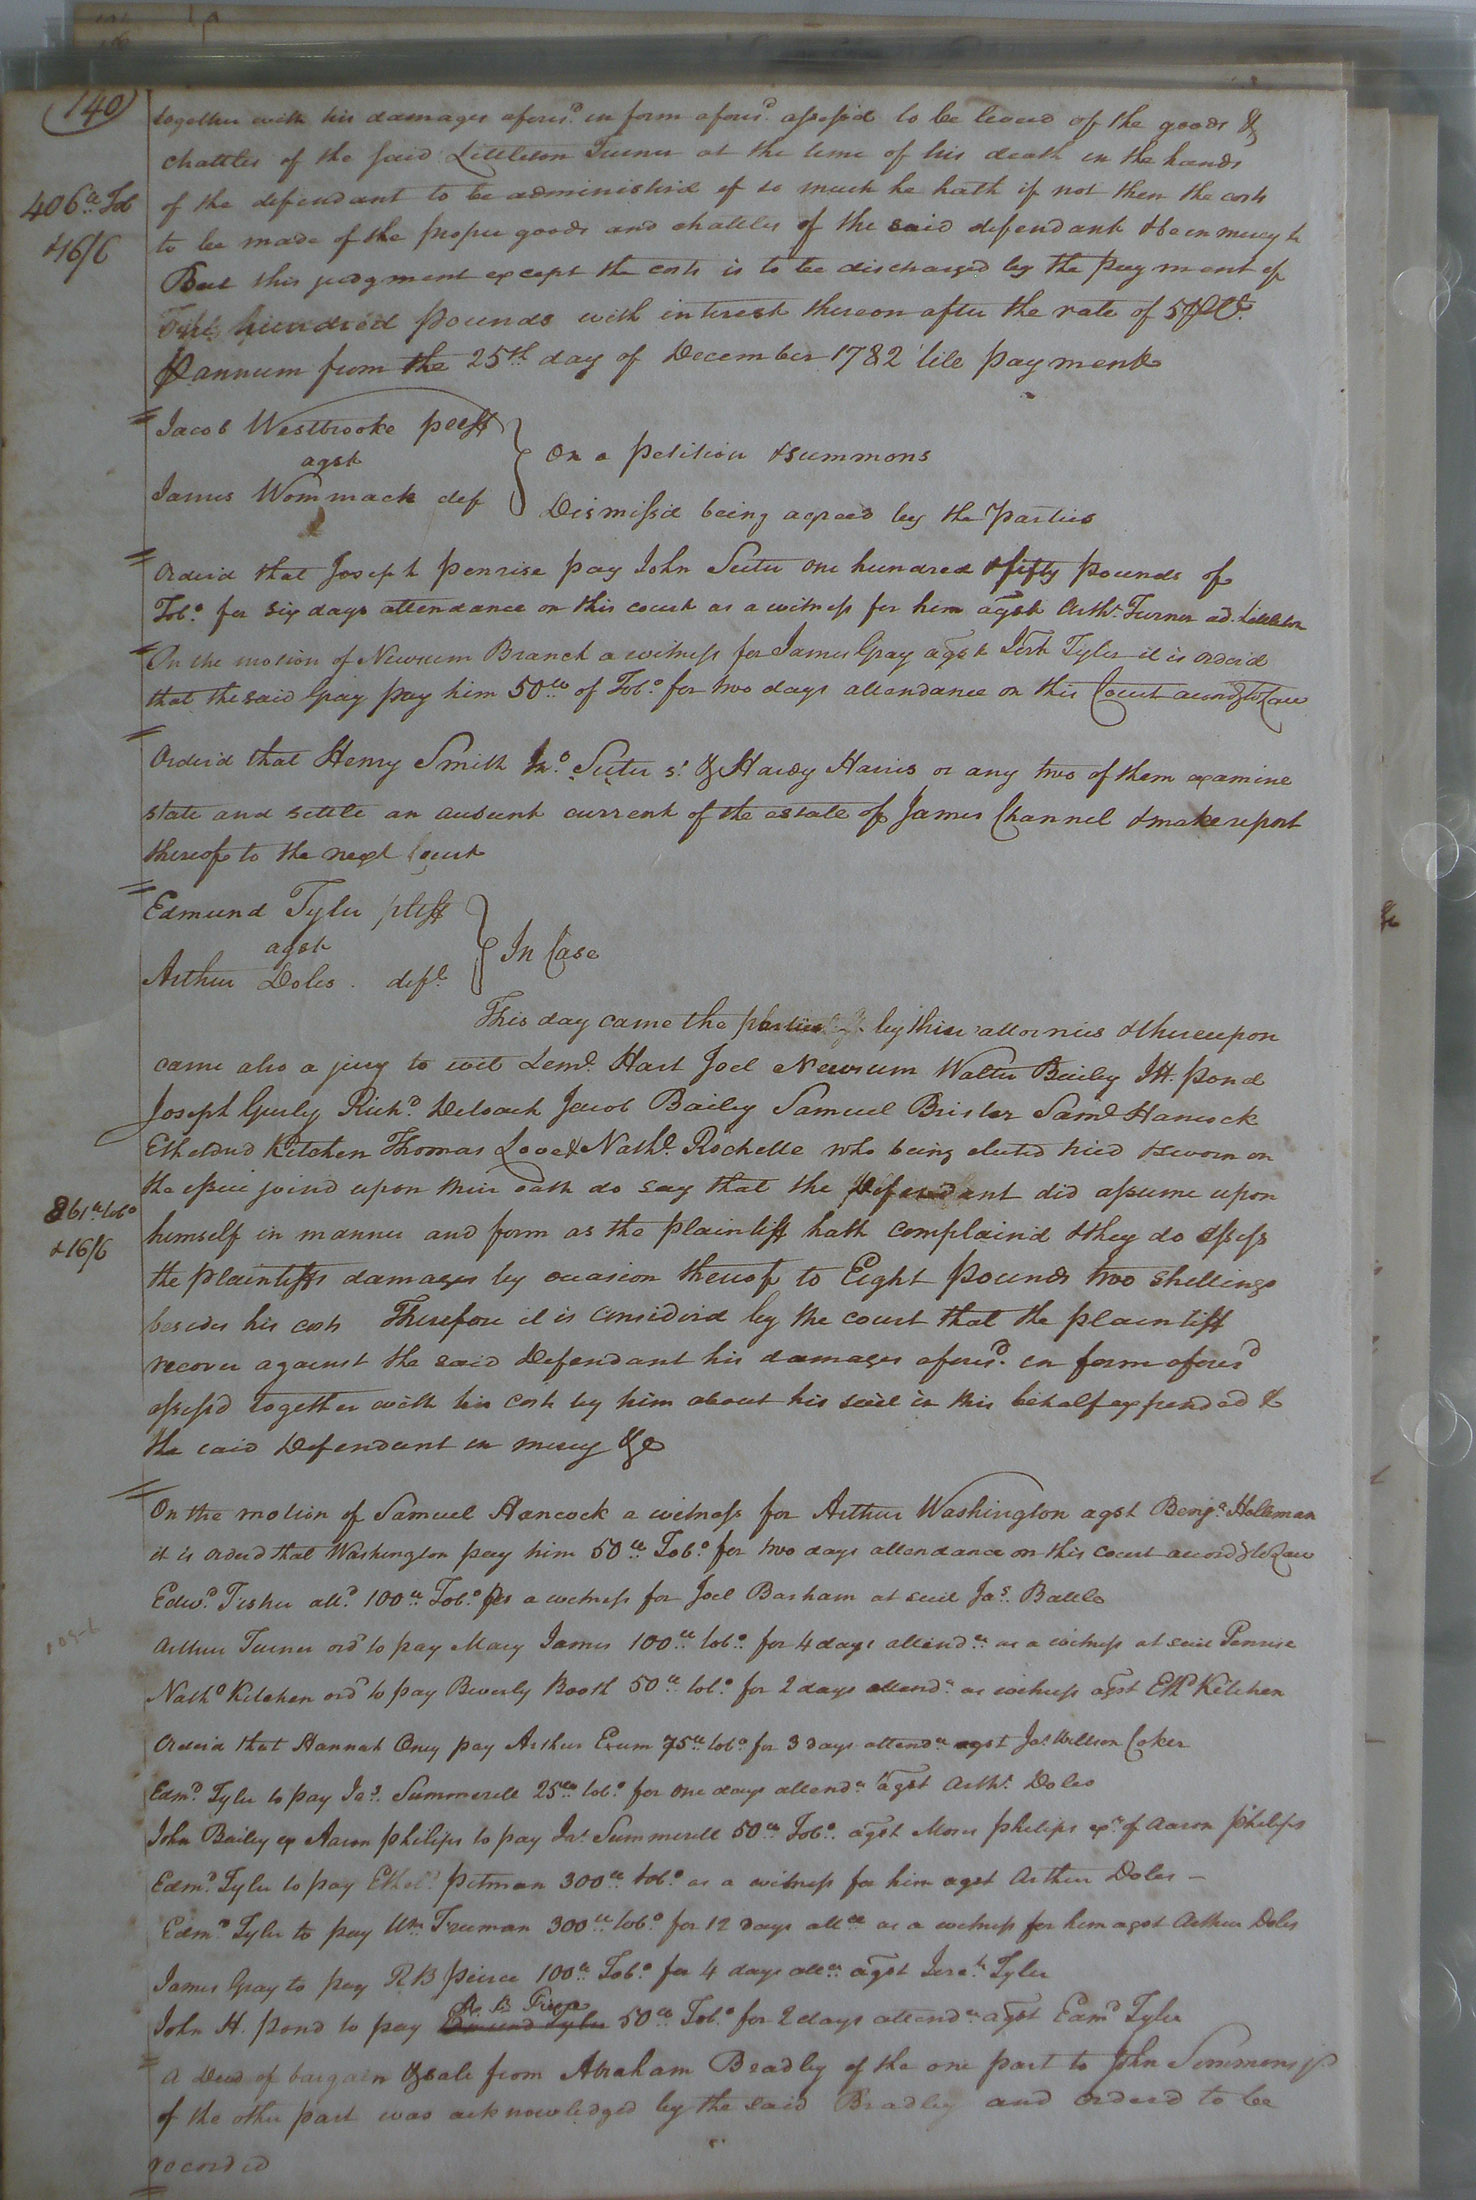 (140)
together with his damages afores.d in form afores.d assess'd to be levied of the goods &
chattles of the said Littleton Turner at the time of his death in the hands
406 lb Tob
of the defendant to be administerd if so much he hath if not then the costs
& 16/6
to be made of the proper goods and chattles of the said defendant & be in mercy &
But this judgment except the costs is to be discharged by the payment of
hundred pounds with interest thereon after the rate of 5 P Ct
P annum from the 25th day of December 1782 till payment
Jacob Westbrooke pltff
agst
On a petition & summons
James Wommack def
Dismiss'd being agreed by the Parties
Orderd that Joseph Penrise pay John Suter one hundred & fifty pounds of
Tob.o for six days attendance on this court as a witness for him agst Arth.r Turner ad. Littleton
On the motion of Newsum Branch a witness for James Gray agst Jerh Tyler it is orderd
that the said Gray pay him 50 lb of Tob.o for two days attendance on this Court accord.g to Law
Orderd that Henry Smith Jn.o Suter s.r & Hardy Harris or any two of them examine
state and settle an account current of the estate of James Channel & make report
thereof to the next Court
Edmund Tyler pltff
agst
In Case
Arthur Doles def.t
This day came the parties by their attornies & thereupon
came also a jury to wit Lem.l Hart Joel Newsum Walter Bailey J H. Pond
Joseph Gurly Rich.d Deloach Jacob Bailey Samuel Brister Sam.l Hancock
Etheldred Kitchen Thomas Love & Nath.l Rochelle who being elected tried & sworn on
the issue joind upon their oath do say that the Defendant did assume upon
861 lb tob.o
himself in manner and form as the plaintiff hath complaind & they do assess
& 16/6
the plaintiffs damages by occasion thereof to Eight pounds two shillings
besides his costs Therefore it is considerd by the court that the plaintiff
recover against the said Defendant his damages afores.d in form afores.d
assess'd together with his costs by him about his suit in this behalf expended &
the said Defendant in mercy &c
On the motion of Samuel Hancock a witness for Arthur Washington agst Benj.a Holleman
it is orderd that Washington pay him 50 lb Tob.o for two days attendance on this court accord.g to Law
Edw.d Fisher all.d 100 lb Tob.o as a witness for Joel Barham at suit Ja.s Battle
Arthur Turner ord.d to pay Mary James 100 lb tob.o for 4 days attend.ce as a witness at suit Penrise
Nath.l Kitchen ord.d to pay Beverly Booth 50 lb tob.o for 2 days attend.ce as witness agst Eth.d Kitchen
Orderd that Hannah Oney pay Arthur Exum 75 lb tob.o for 3 days attend.ce agst Ja.s Willson Coker
Edm.d Tyler to pay Ja.s Summerell 25 lb tob.o for one days attend.ce agst Arth.r Doles
John Bailey ex Aaron Philips to pay Ja.s Summerell 50 lb Tob.o agst Moses Philips ex.r of Aaron Philips
Edm.d Tyler to pay Ethel.d Pitman 300 lb tob.o as a witness for him agst Arthur Doles –
Edm.d Tyler to pay Wm. Freeman 300 lb tob.o for 12 days att.ce as a witness for him agst Arthur Doles
James Gray to pay R B Peirce 100 lb Tob.o for 4 days att.ce agst Jere.h Tyler
R. B Pierce
John H. Pond to pay Edmund Tyler 50 lb Tob.o for 2 days attend.ce agst Edm.d Tyler
A Deed of bargain & sale from Abraham Bradley of the one part to John Simmons
of the other part was acknowledged by the said Bradley and orderd to be
recorded